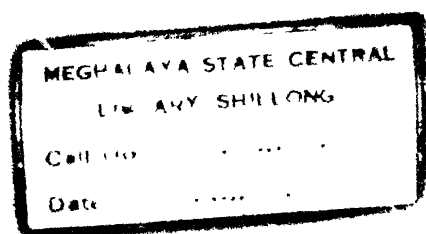 MEGHALAYA STATE CENTRAL
LIBRARY SHILLONG
Call No
Date